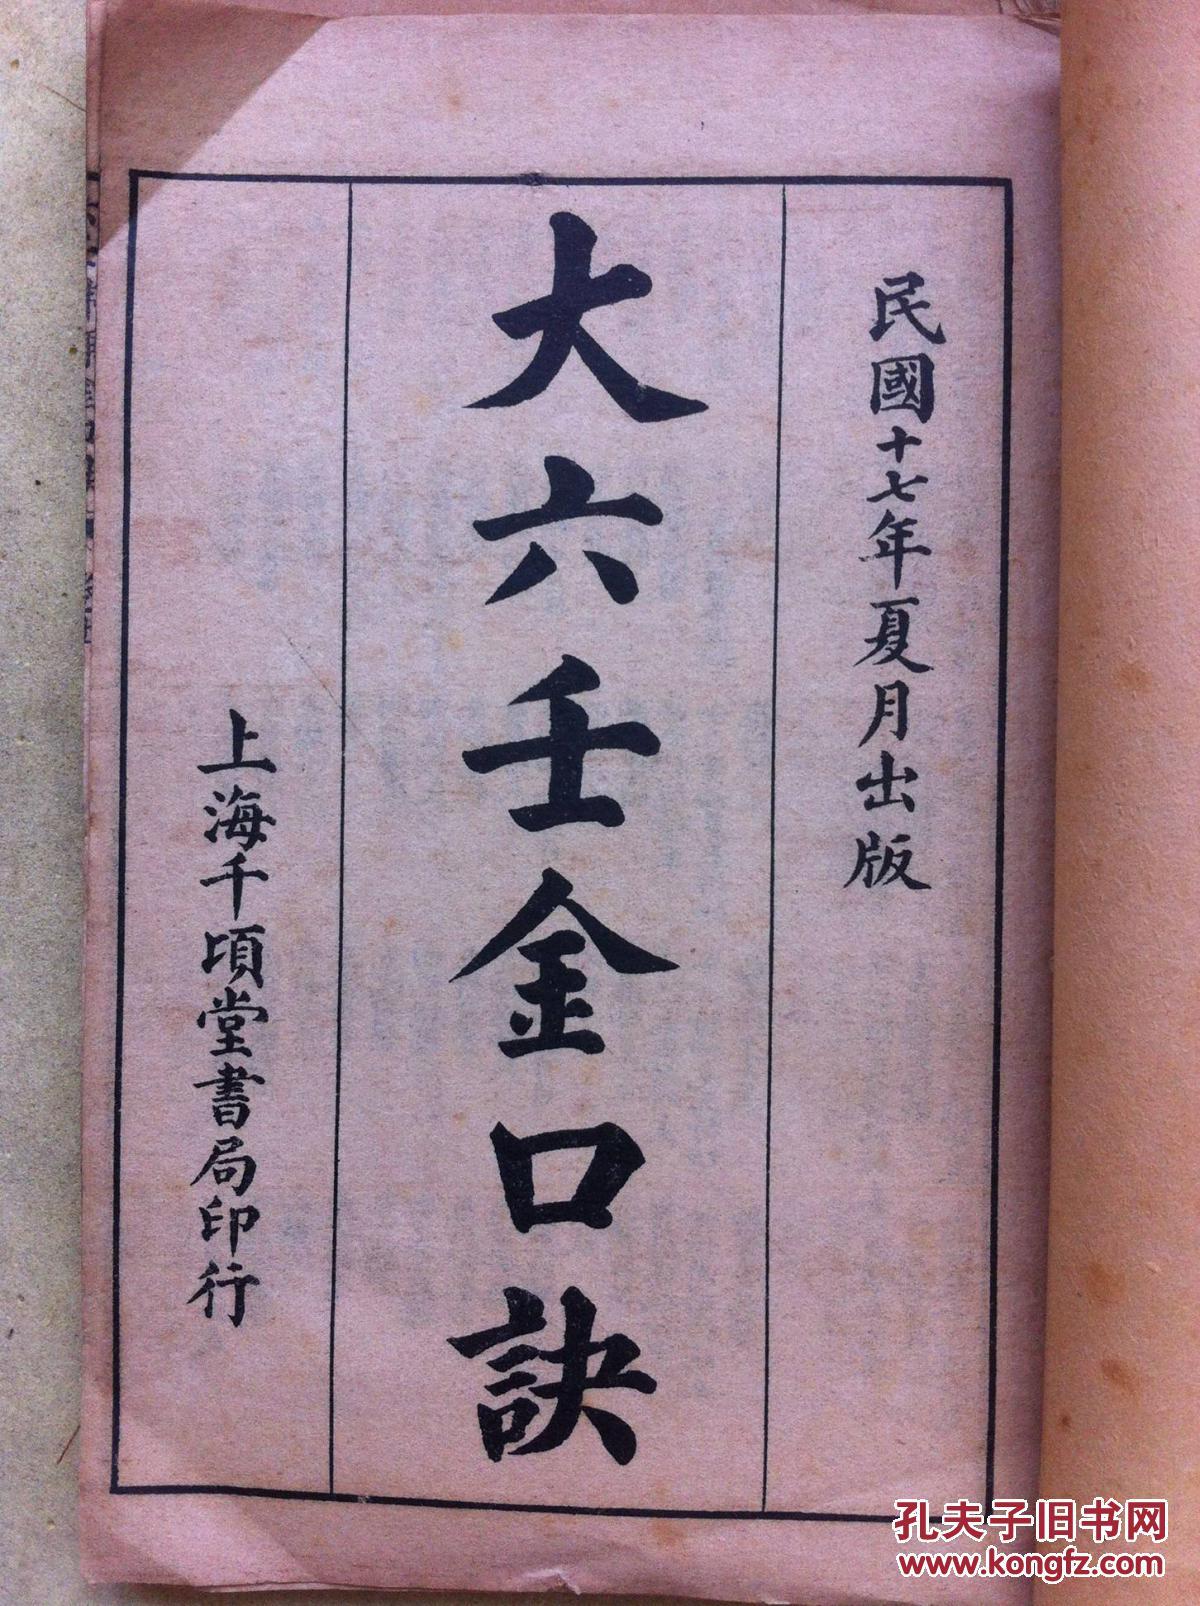 民國十七年夏月出版
大六壬金口訣
上海千頃堂書局印行
孔夫子旧书网
www.kongfz.com